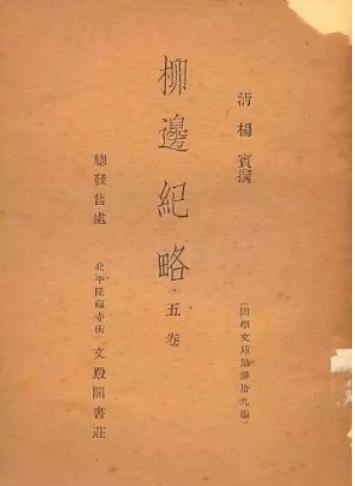 清楊賓撰
〔國學文庫第叁拾九編〕
柳邊紀略·五卷
總發售處
北平隆福寺街文殿閣書莊